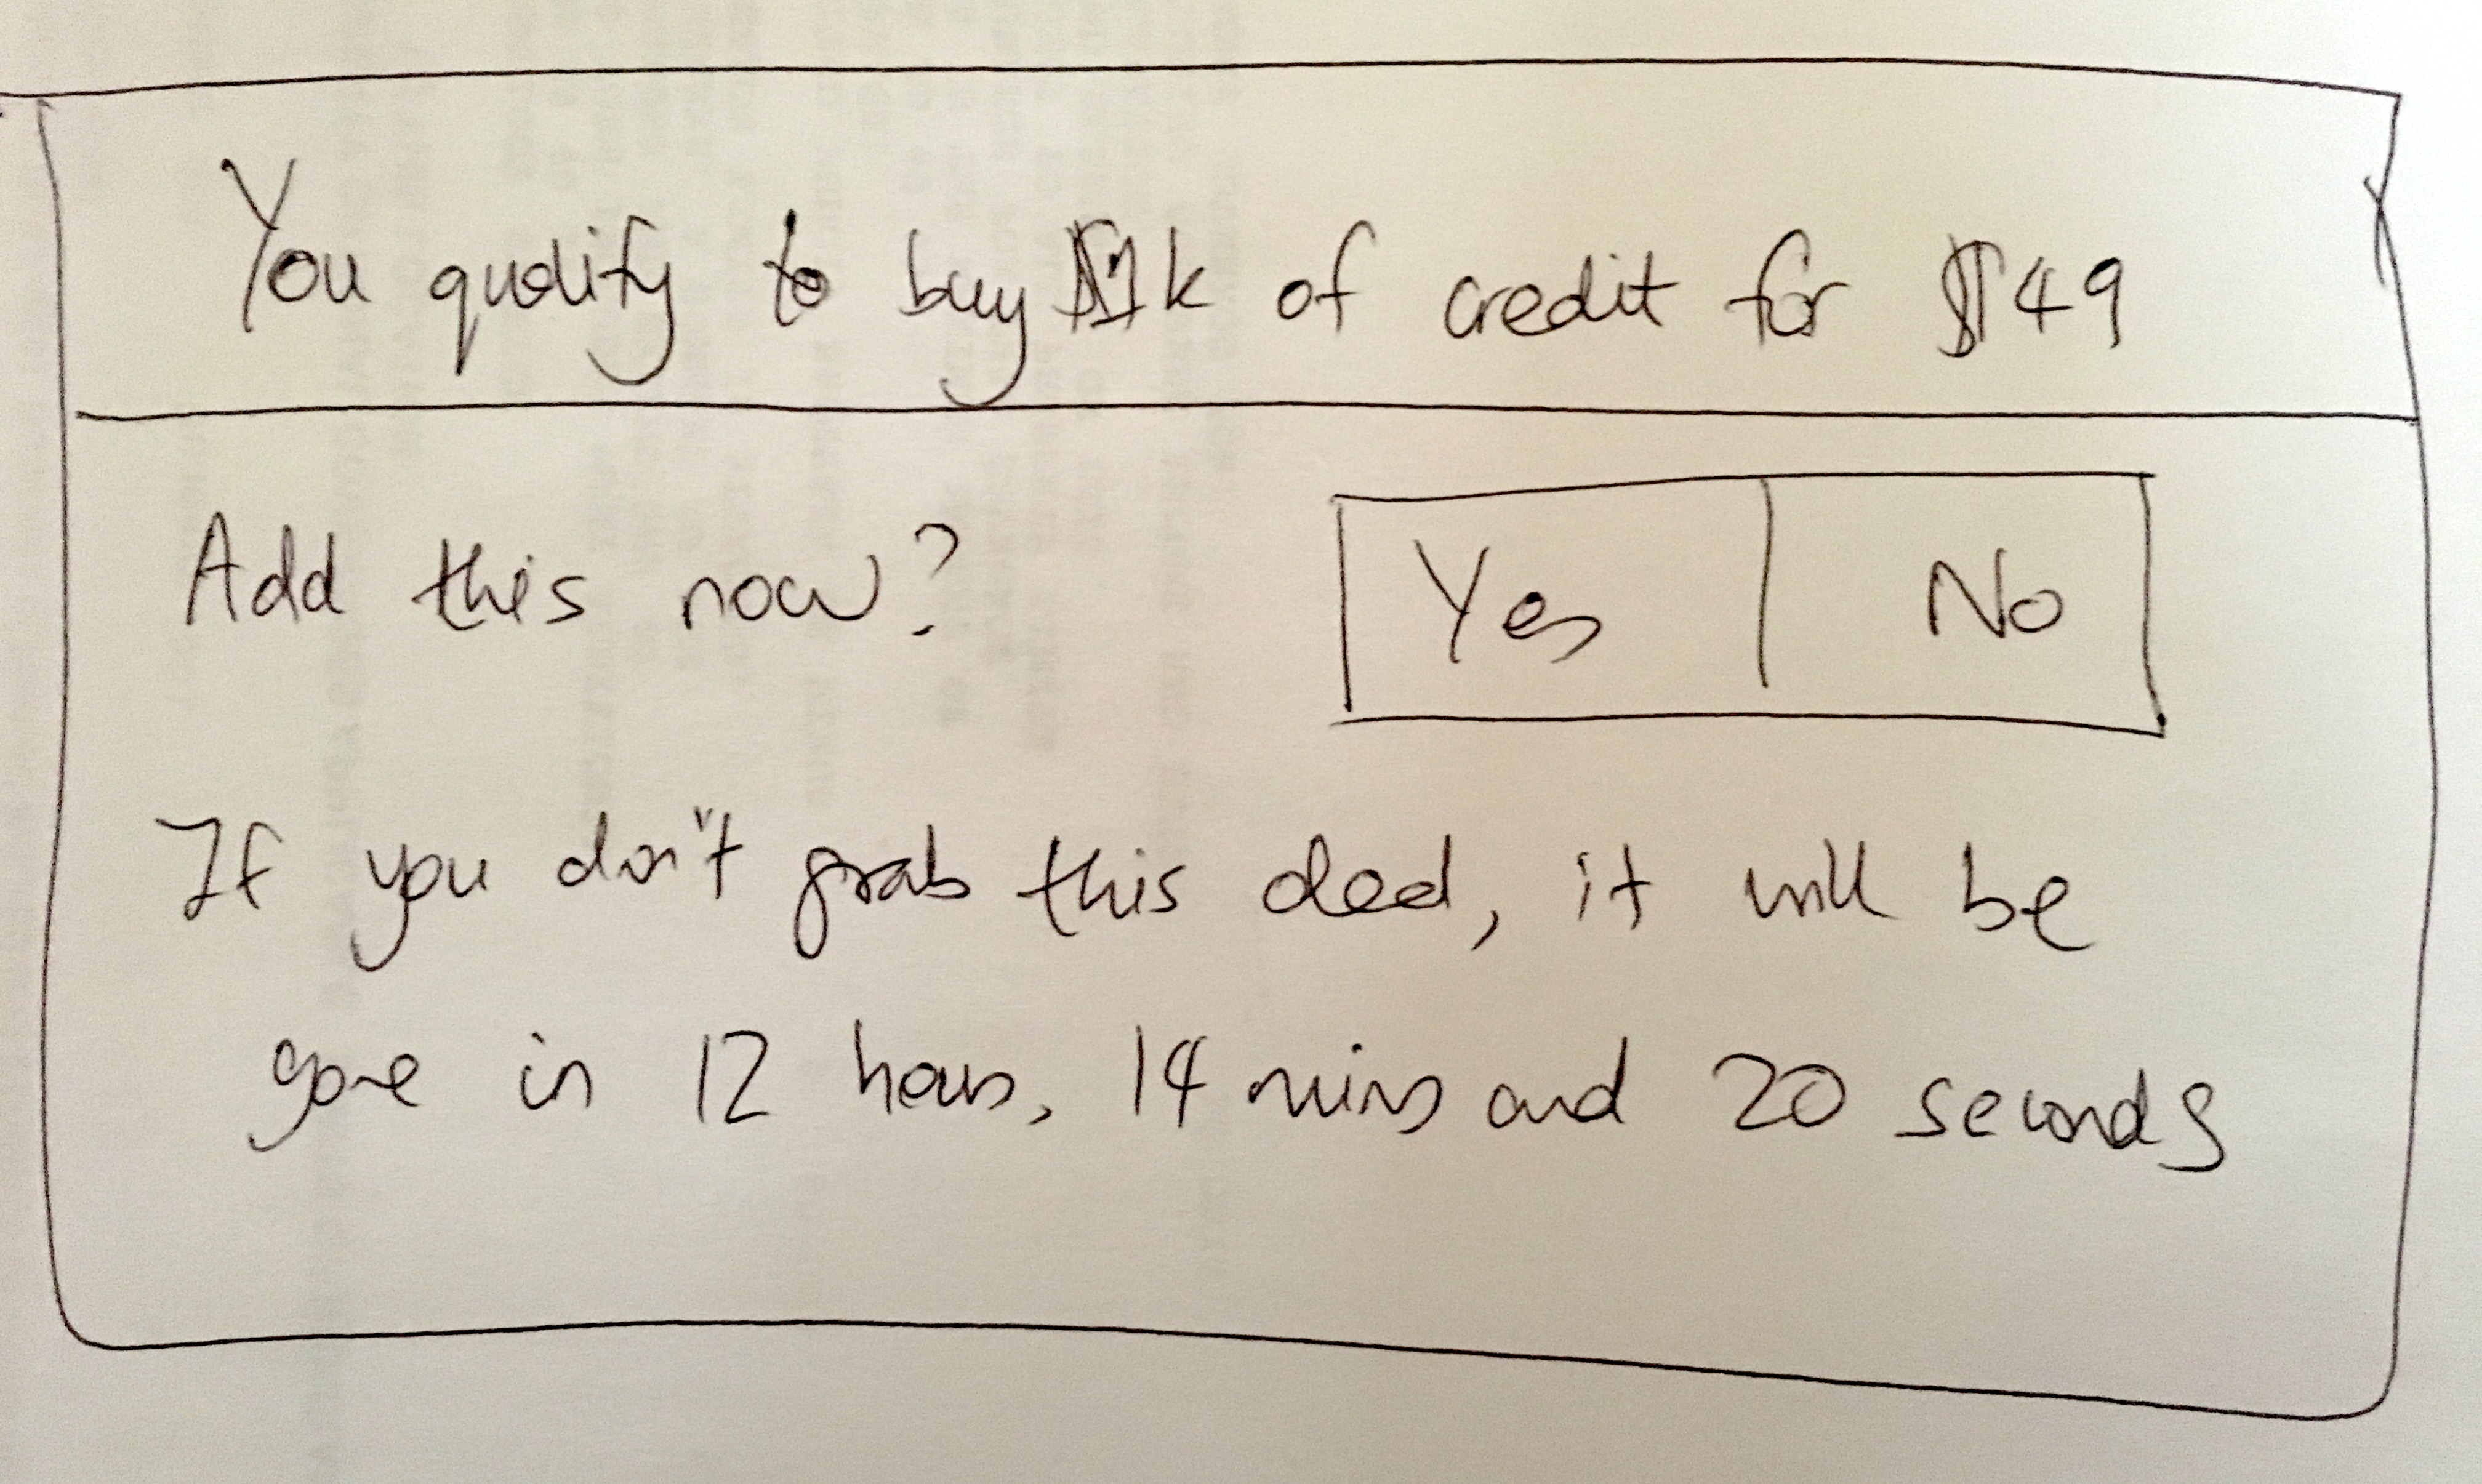 You qualify to buy $1k of credit for $49
Add this now?
Yes
No
If you don't grab this deal, it will be
gone in 12 hours, 14 mins and 20 seconds